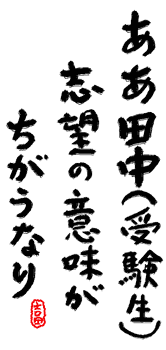 ああ田中（受験生）
志望の意味が
ちがうなり